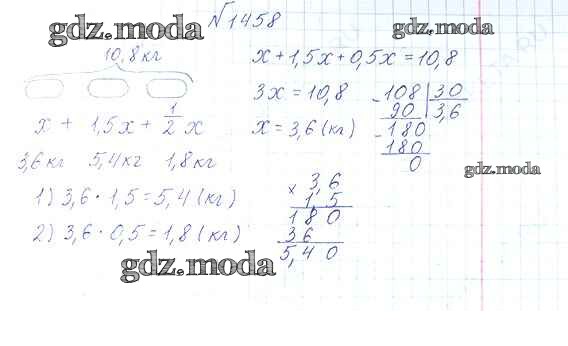 №1458
gdz.moda
gdz.moda
10,8 кг
x + 1,5x + 0,5x = 10,8
x + 1,5x + 1/2 x
3,6 кг 5,4 кг 1,8 кг
1) 3,6 · 1,5 = 5,4 (кг)
2) 3,6 · 0,5 = 1,8 (кг)
3x = 10,8
x = 3,6 (кг)
108 | 30
- 90 | 3,6
- 180
180
0
gdz.moda
× 3,6
1,5
180
36
5,40
gdz.moda